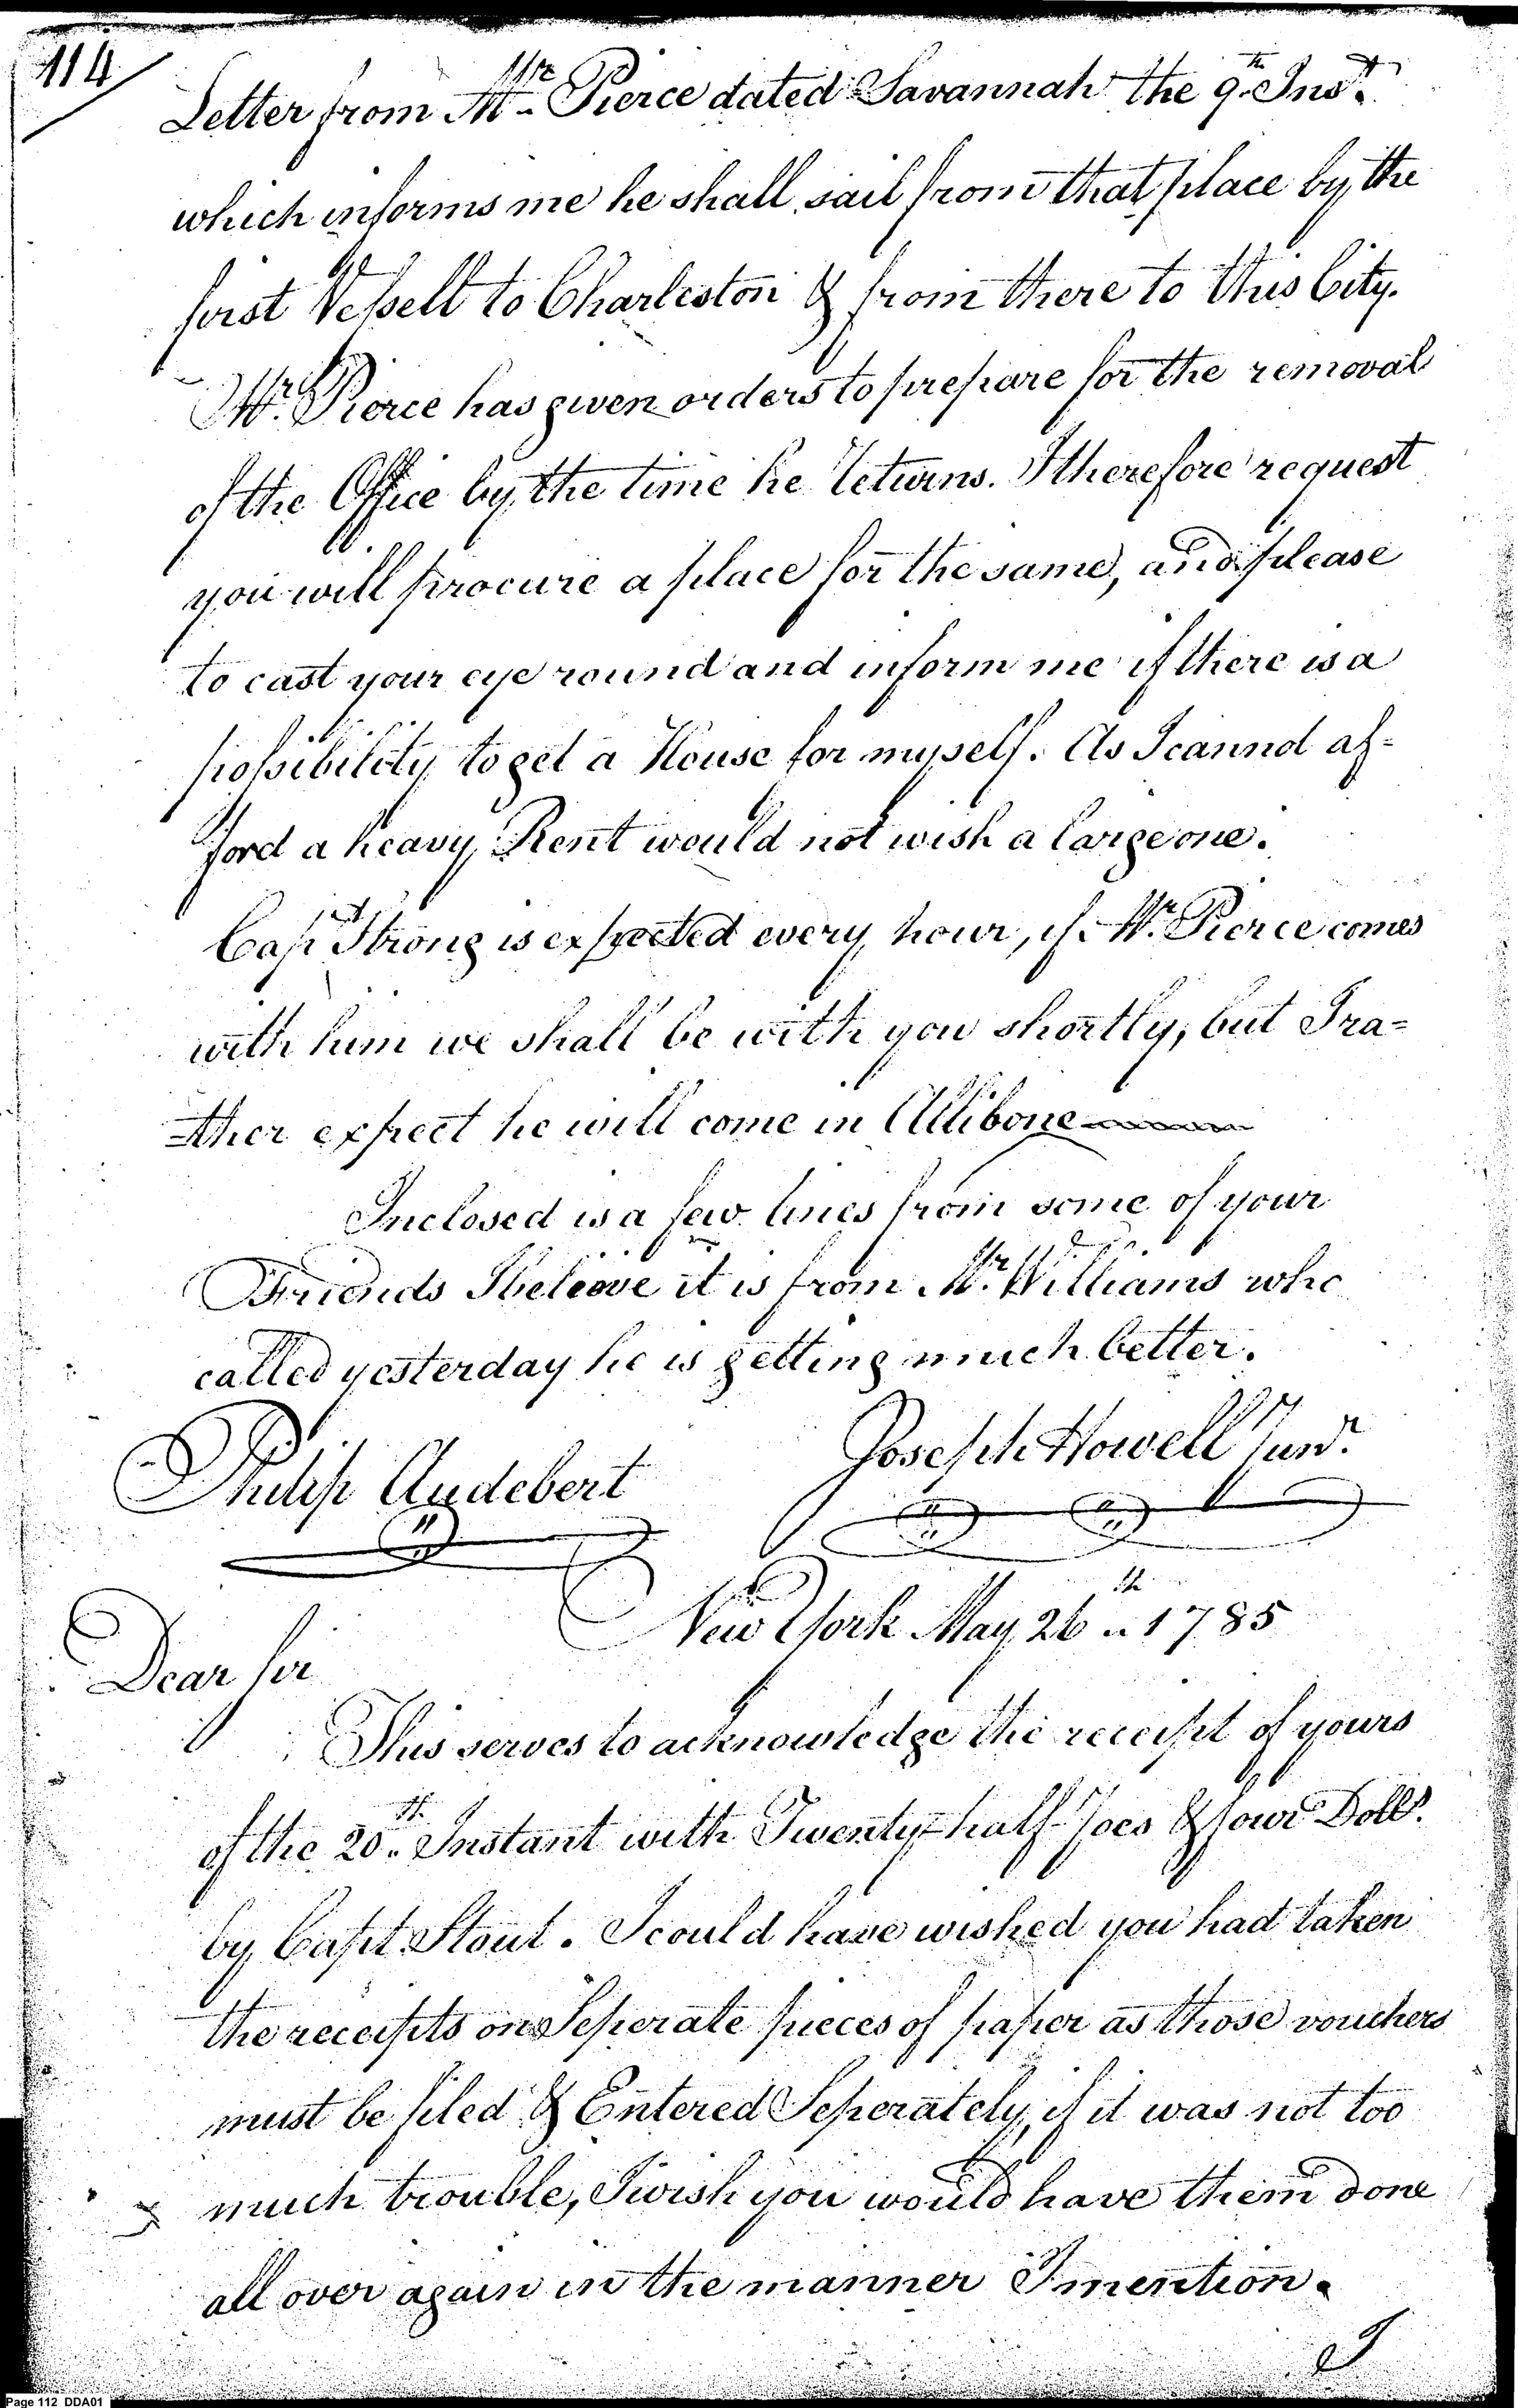 114
Letter from Mr. Pierce dated Savannah the 9th Inst.
which informs me he shall sail from that place by the
first Vessell to Charleston & from there to this City.
Mr. Pierce has given orders to prepare for the removal
of the Office by the time he returns. I therefore request
you will procure a place for the same, and please
to cast your eye round and inform me if there is a
possibility to get a House for myself. As I cannot af-
ford a heavy Rent would not wish a large one.
Capt Strong is expected every hour, if Mr. Pierce comes
with him we shall be with you shortly, but I ra=
=ther expect he will come in Allibone
Inclosed is a few lines from some of your
Friends I beleive it is from Mr. Williams who
called yesterday he is getting much better.
Joseph Howell Junr.
Philip Audebert
New York May 26th 1785
Dear Sir
This serves to acknowledge the receipt of yours
of the 20th Instant with Twenty-half-Joes & four Dolls.
by Capt Stout. I could have wished you had taken
the receipts on Seperate pieces of paper as those vouchers
must be filed & Entered Seperately, if it was not too
much trouble, I wish you would have them done
all over again in the manner I mention.
I
Page 112 DDA01